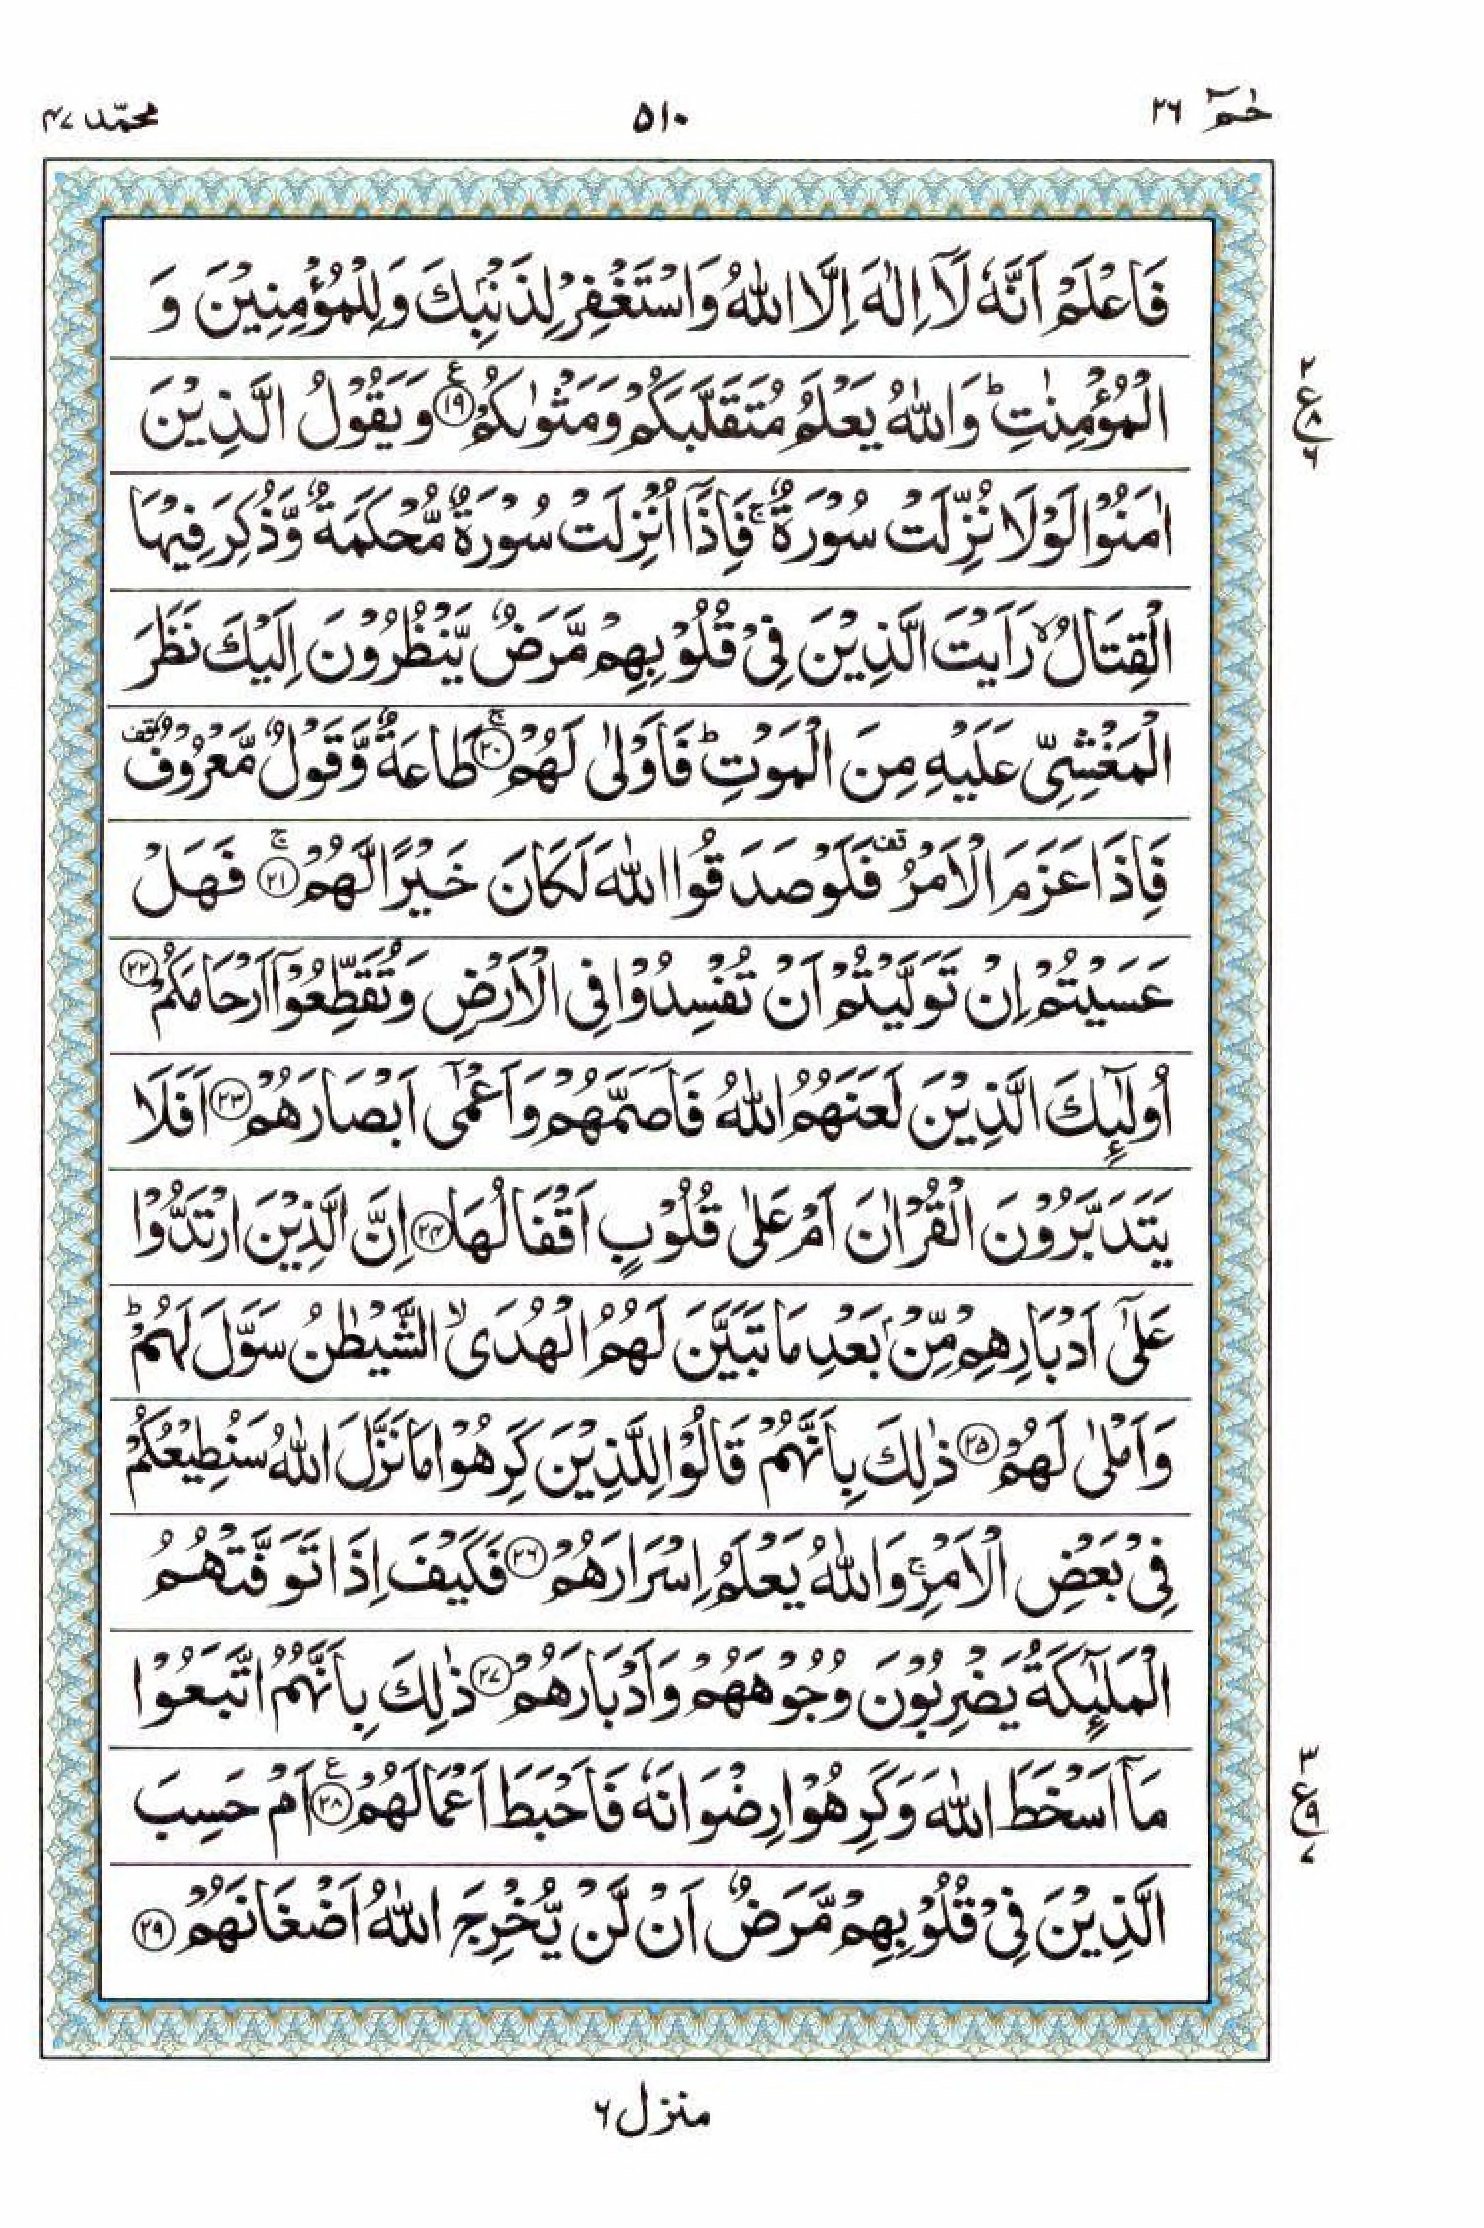 حٰمٓ ٢٦
٥١٠
محمّد ٤٧
فَاعْلَمْ اَنَّهٗ لَاۤ اِلٰهَ اِلَّا اللّٰهُ وَاسْتَغْفِرْ لِذَنْۢبِكَ وَلِلْمُؤْمِنِيْنَ وَ
الْمُؤْمِنٰتِ ؕ وَاللّٰهُ يَعْلَمُ مُتَقَلَّبَكُمْ وَمَثْوٰىكُمْ ﴿١٩﴾ ع وَيَقُوْلُ الَّذِيْنَ
اٰمَنُوْا لَوْلَا نُزِّلَتْ سُوْرَةٌ ۚ فَاِذَاۤ اُنْزِلَتْ سُوْرَةٌ مُّحْكَمَةٌ وَّذُكِرَ فِيْهَا
الْقِتَالُ ۙ رَاَيْتَ الَّذِيْنَ فِيْ قُلُوْبِهِمْ مَّرَضٌ يَّنْظُرُوْنَ اِلَيْكَ نَظَرَ
الْمَغْشِيِّ عَلَيْهِ مِنَ الْمَوْتِ ؕ فَاَوْلٰى لَهُمْ ﴿٢٠﴾ ۚ طَاعَةٌ وَّقَوْلٌ مَّعْرُوْفٌ قف
فَاِذَا عَزَمَ الْاَمْرُ قف فَلَوْ صَدَقُوا اللّٰهَ لَكَانَ خَيْرًا لَّهُمْ ﴿٢١﴾ ۚ فَهَلْ
عَسَيْتُمْ اِنْ تَوَلَّيْتُمْ اَنْ تُفْسِدُوْا فِي الْاَرْضِ وَتُقَطِّعُوْۤا اَرْحَامَكُمْ ﴿٢٢﴾
اُولٰٓئِكَ الَّذِيْنَ لَعَنَهُمُ اللّٰهُ فَاَصَمَّهُمْ وَاَعْمٰۤى اَبْصَارَهُمْ ﴿٢٣﴾ اَفَلَا
يَتَدَبَّرُوْنَ الْقُرْاٰنَ اَمْ عَلٰى قُلُوْبٍ اَقْفَالُهَا ﴿٢٤﴾ اِنَّ الَّذِيْنَ ارْتَدُّوْا
عَلٰۤى اَدْبَارِهِمْ مِّنْۢ بَعْدِ مَا تَبَيَّنَ لَهُمُ الْهُدَى ۙ الشَّيْطٰنُ سَوَّلَ لَهُمْ ؕ
وَاَمْلٰى لَهُمْ ﴿٢٥﴾ ذٰلِكَ بِاَنَّهُمْ قَالُوْا لِلَّذِيْنَ كَرِهُوْا مَا نَزَّلَ اللّٰهُ سَنُطِيْعُكُمْ
فِيْ بَعْضِ الْاَمْرِ ۚ وَاللّٰهُ يَعْلَمُ اِسْرَارَهُمْ ﴿٢٦﴾ فَكَيْفَ اِذَا تَوَفَّتْهُمُ
الْمَلٰٓئِكَةُ يَضْرِبُوْنَ وُجُوْهَهُمْ وَاَدْبَارَهُمْ ﴿٢٧﴾ ذٰلِكَ بِاَنَّهُمُ اتَّبَعُوْا
مَاۤ اَسْخَطَ اللّٰهَ وَكَرِهُوْا رِضْوَانَهٗ فَاَحْبَطَ اَعْمَالَهُمْ ﴿٢٨﴾ ع اَمْ حَسِبَ
الَّذِيْنَ فِيْ قُلُوْبِهِمْ مَّرَضٌ اَنْ لَّنْ يُّخْرِجَ اللّٰهُ اَضْغَانَهُمْ ﴿٢٩﴾
٢
ع ٨
٦
٣
ع ٩
٧
منزل ٦